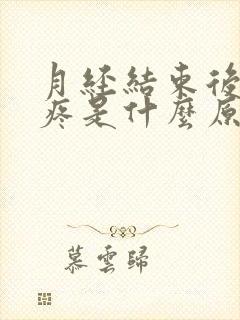 月经結束後
疼是什麼原
慕雲歸